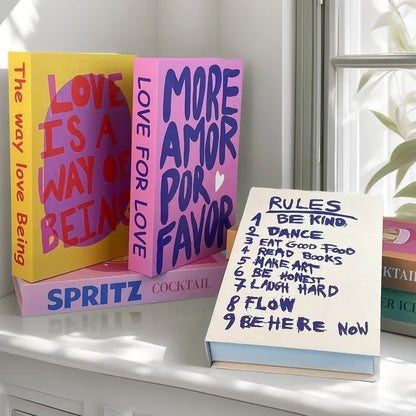 The way love Being
LOVE
IS A
WAY OF
BEING
LOVE FOR LOVE
MORE
AMOR
POR
FAVOR
SPRITZ COCKTAIL
RULES
1 BE KIND
2 DANCE
3 EAT GOOD FOOD
4 READ BOOKS
5 MAKE ART
6 BE HONEST
7 LAUGH HARD
8 FLOW
9 BE HERE NOW
COCKTAIL